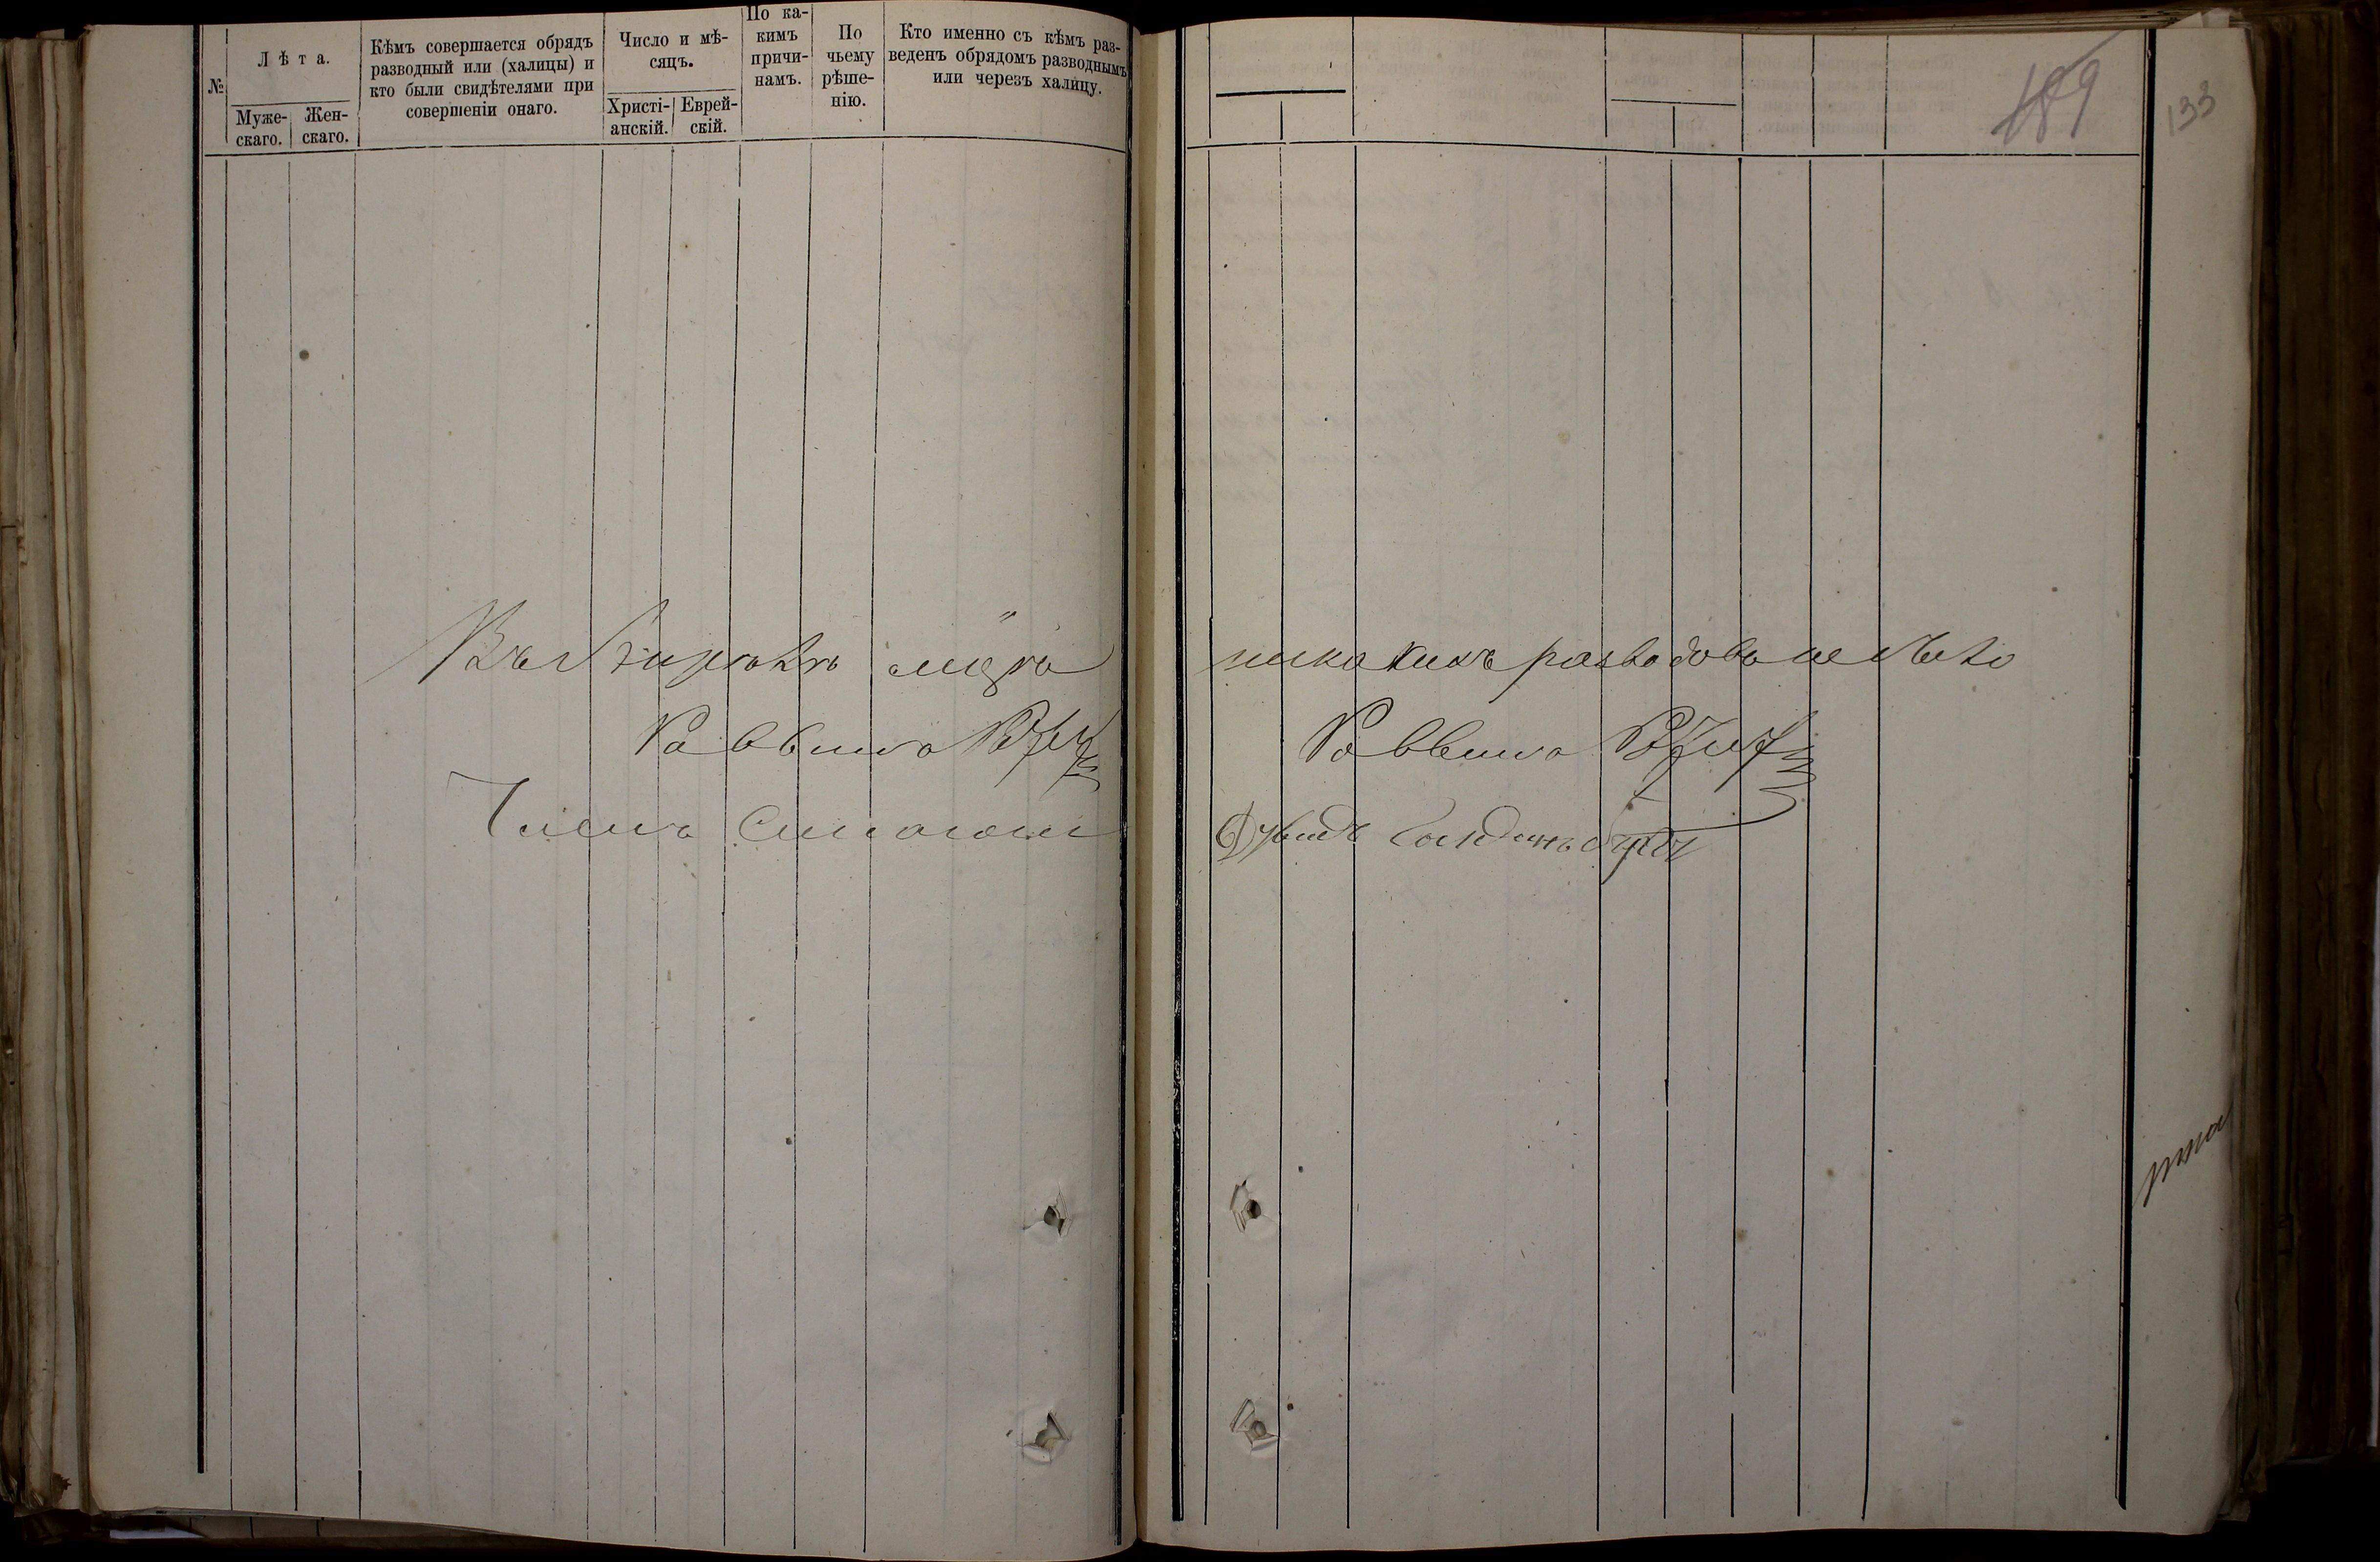 №
Лѣта.
Муже-
скаго.
Жен-
скаго.
Кѣмъ совершается обрядъ
разводный или (халицы) и
кто были свидѣтелями при
совершеніи онаго.
Число и мѣ-
сяцъ.
Христі-
анскій.
Еврей-
скій.
По ка-
кимъ
причи-
намъ.
По
чьему
рѣше-
нію.
Кто именно съ кѣмъ раз-
веденъ обрядомъ разводнымъ
или через халицу.
189
133
мѣсяца никакихъ разводовъ не было
Раввинъ
Раввинъ
Членъ Синагоги